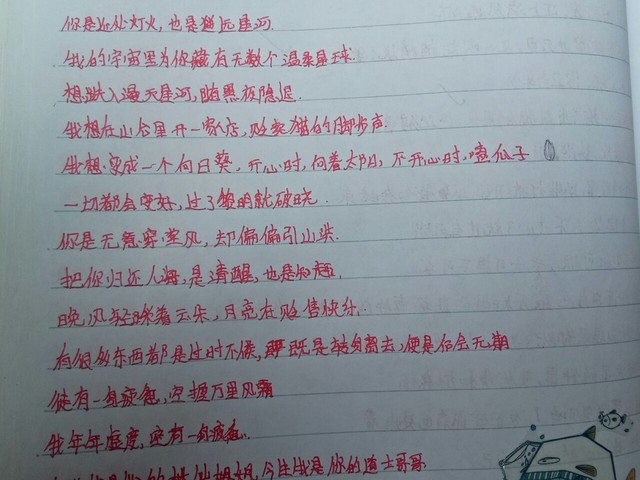 你是近处灯火,也是猫远星河.
我的宇宙里为你藏有无数个温柔星球.
想跃入漫天星河,踏黑夜隐退.
我想在山谷里开一家店,贩卖猫的脚步声.
我想变成一个向日葵,开心时,向着太阳,不开心时,嗑瓜子
一切都会变好,过了黎明就破晓.
你是无意穿堂风,却偏偏引山洪.
把你归还人海,是清醒,也是知趣.
晚风轻踩着云朵,月亮在贩售快乐.
有很多东西都是过时不候,既是转身离去,便是后会无期
徒有一身疲惫,空握万里风霜
我年年虚度,空有一身疲惫.
今生我是你的道士哥哥